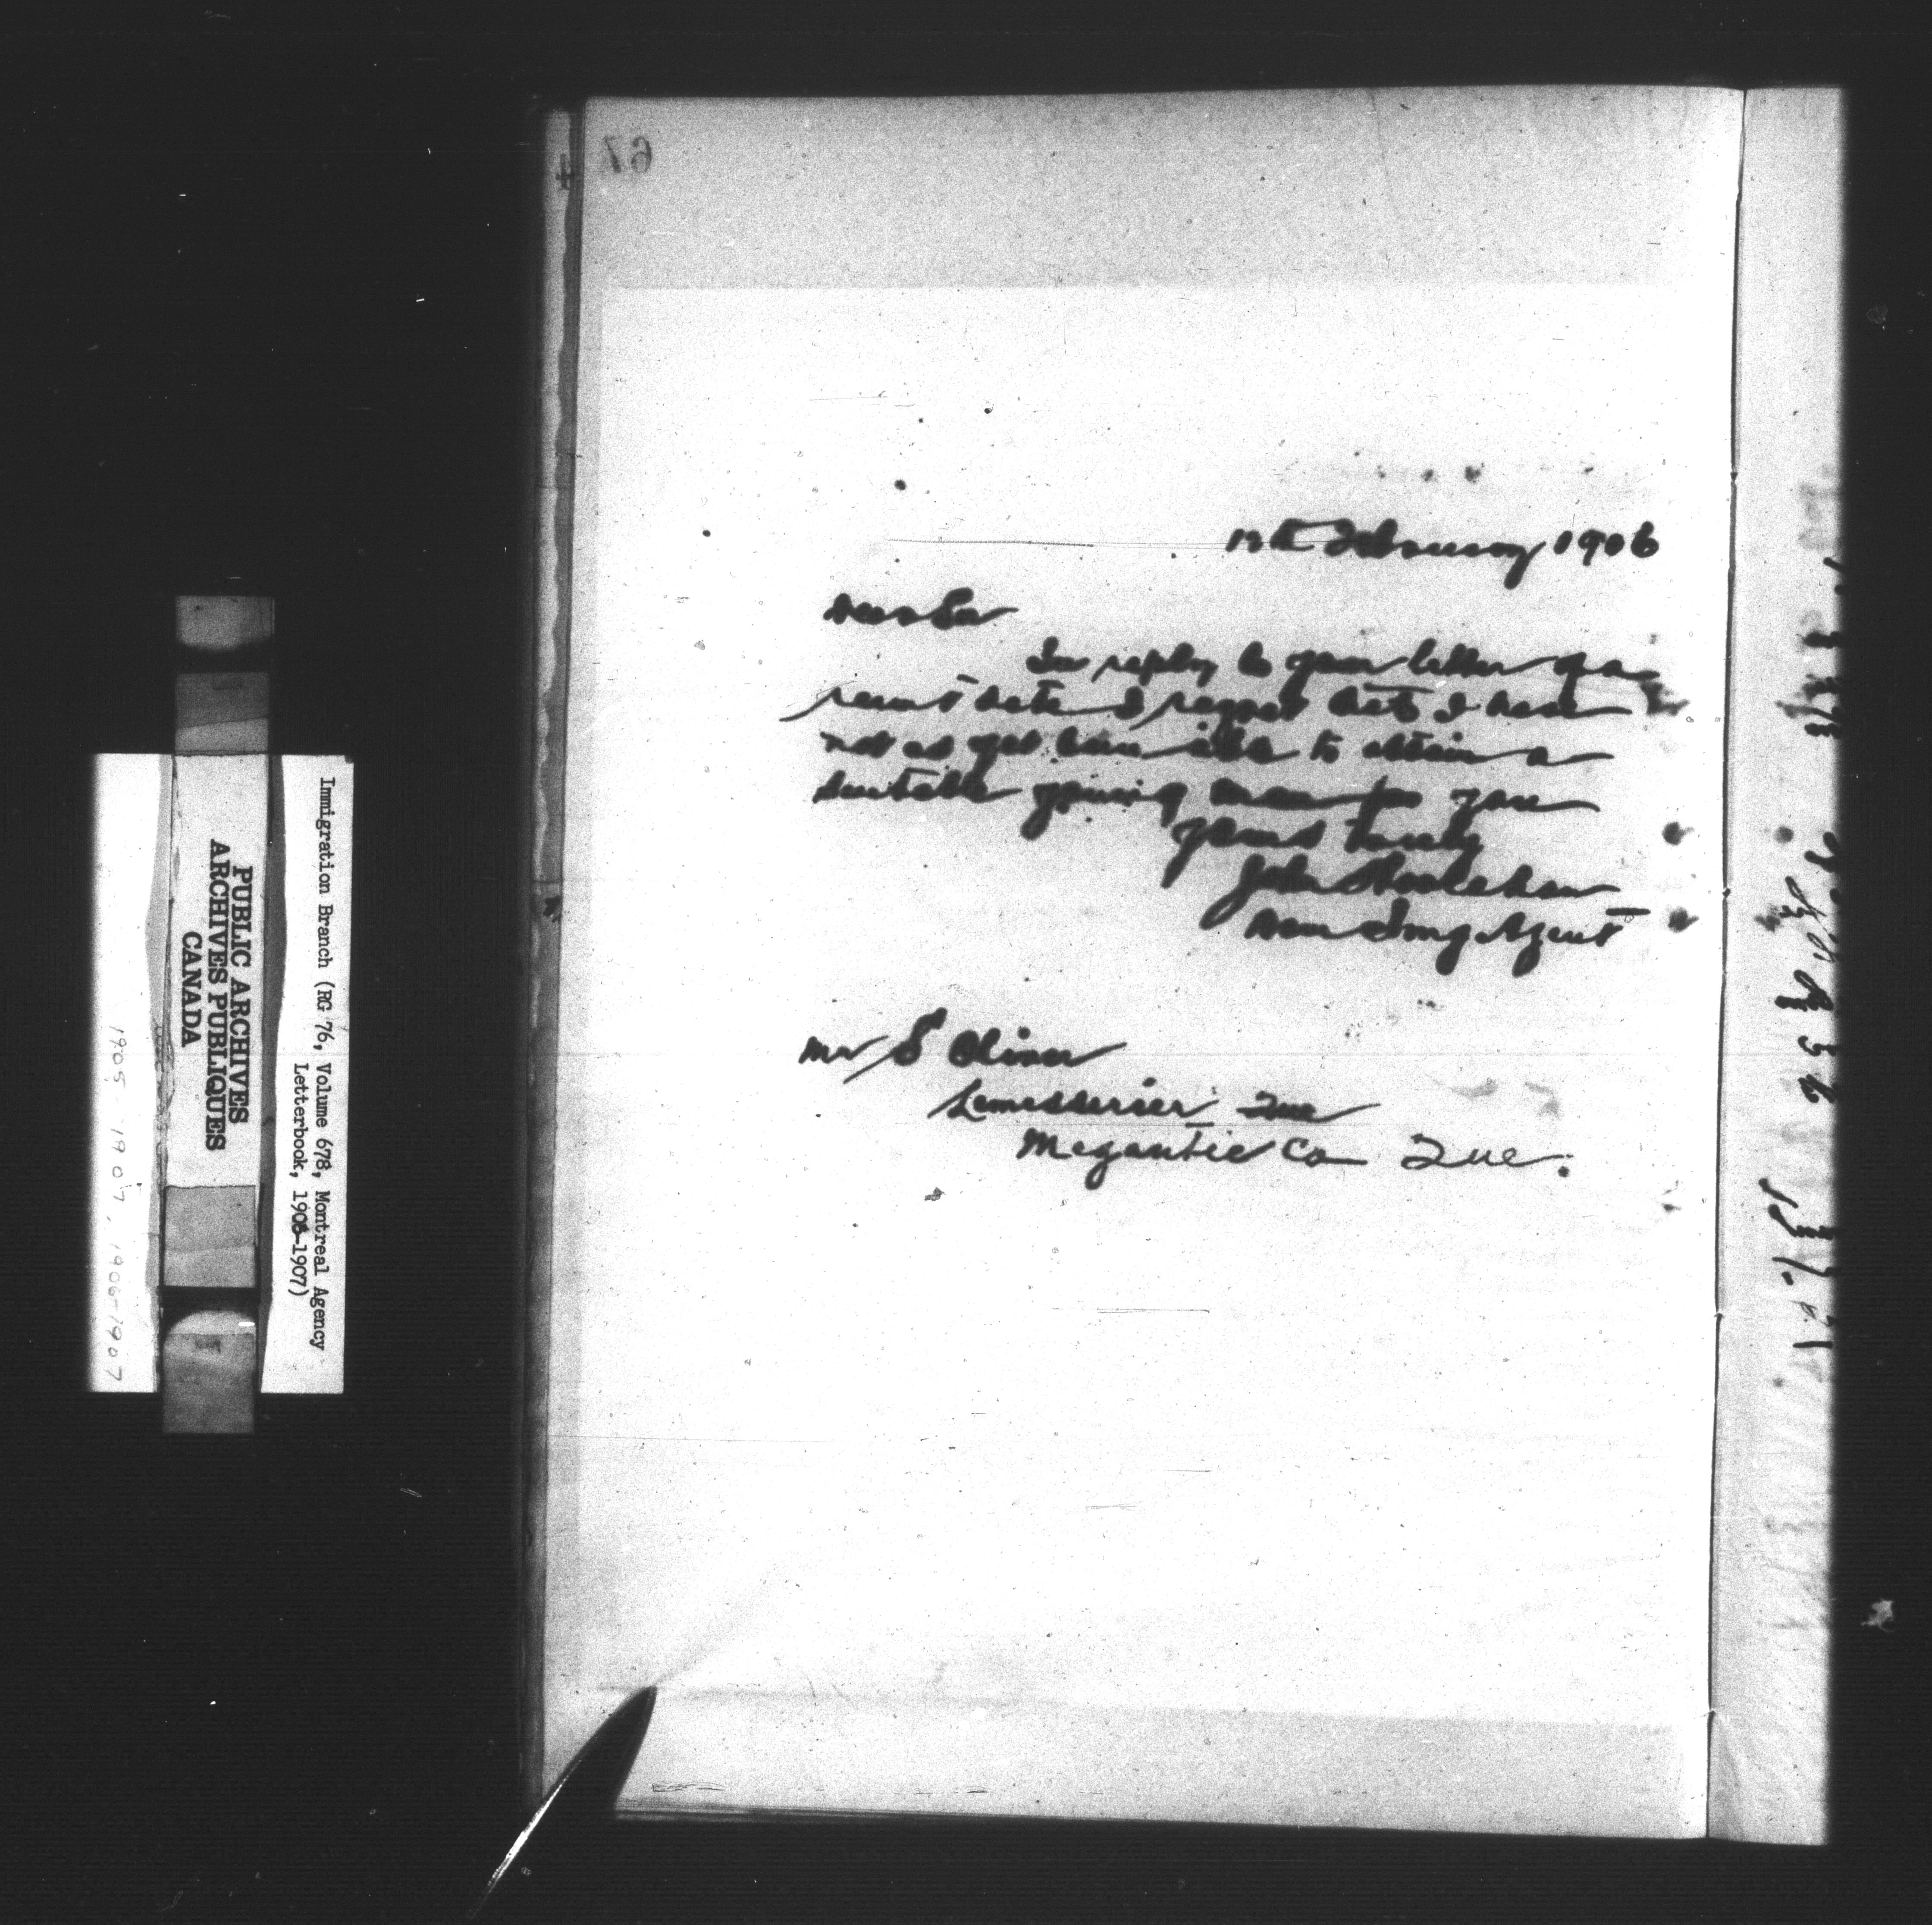 67
12th February 1906
Dear Sir
In reply to your letter of a
recent date I regret that I have
not as yet been able to obtain a
suitable young man for you
Yours truly
John Hoolahan
Dom Img Agent
Mr S Oliver
Lemesurier Que
Megantic Co Que.
Immigration Branch (RG 76, Volume 678, Montreal Agency
Letterbook, 1905-1907)
PUBLIC ARCHIVES
ARCHIVES PUBLIQUES
CANADA
1905-1907, 1906-1907